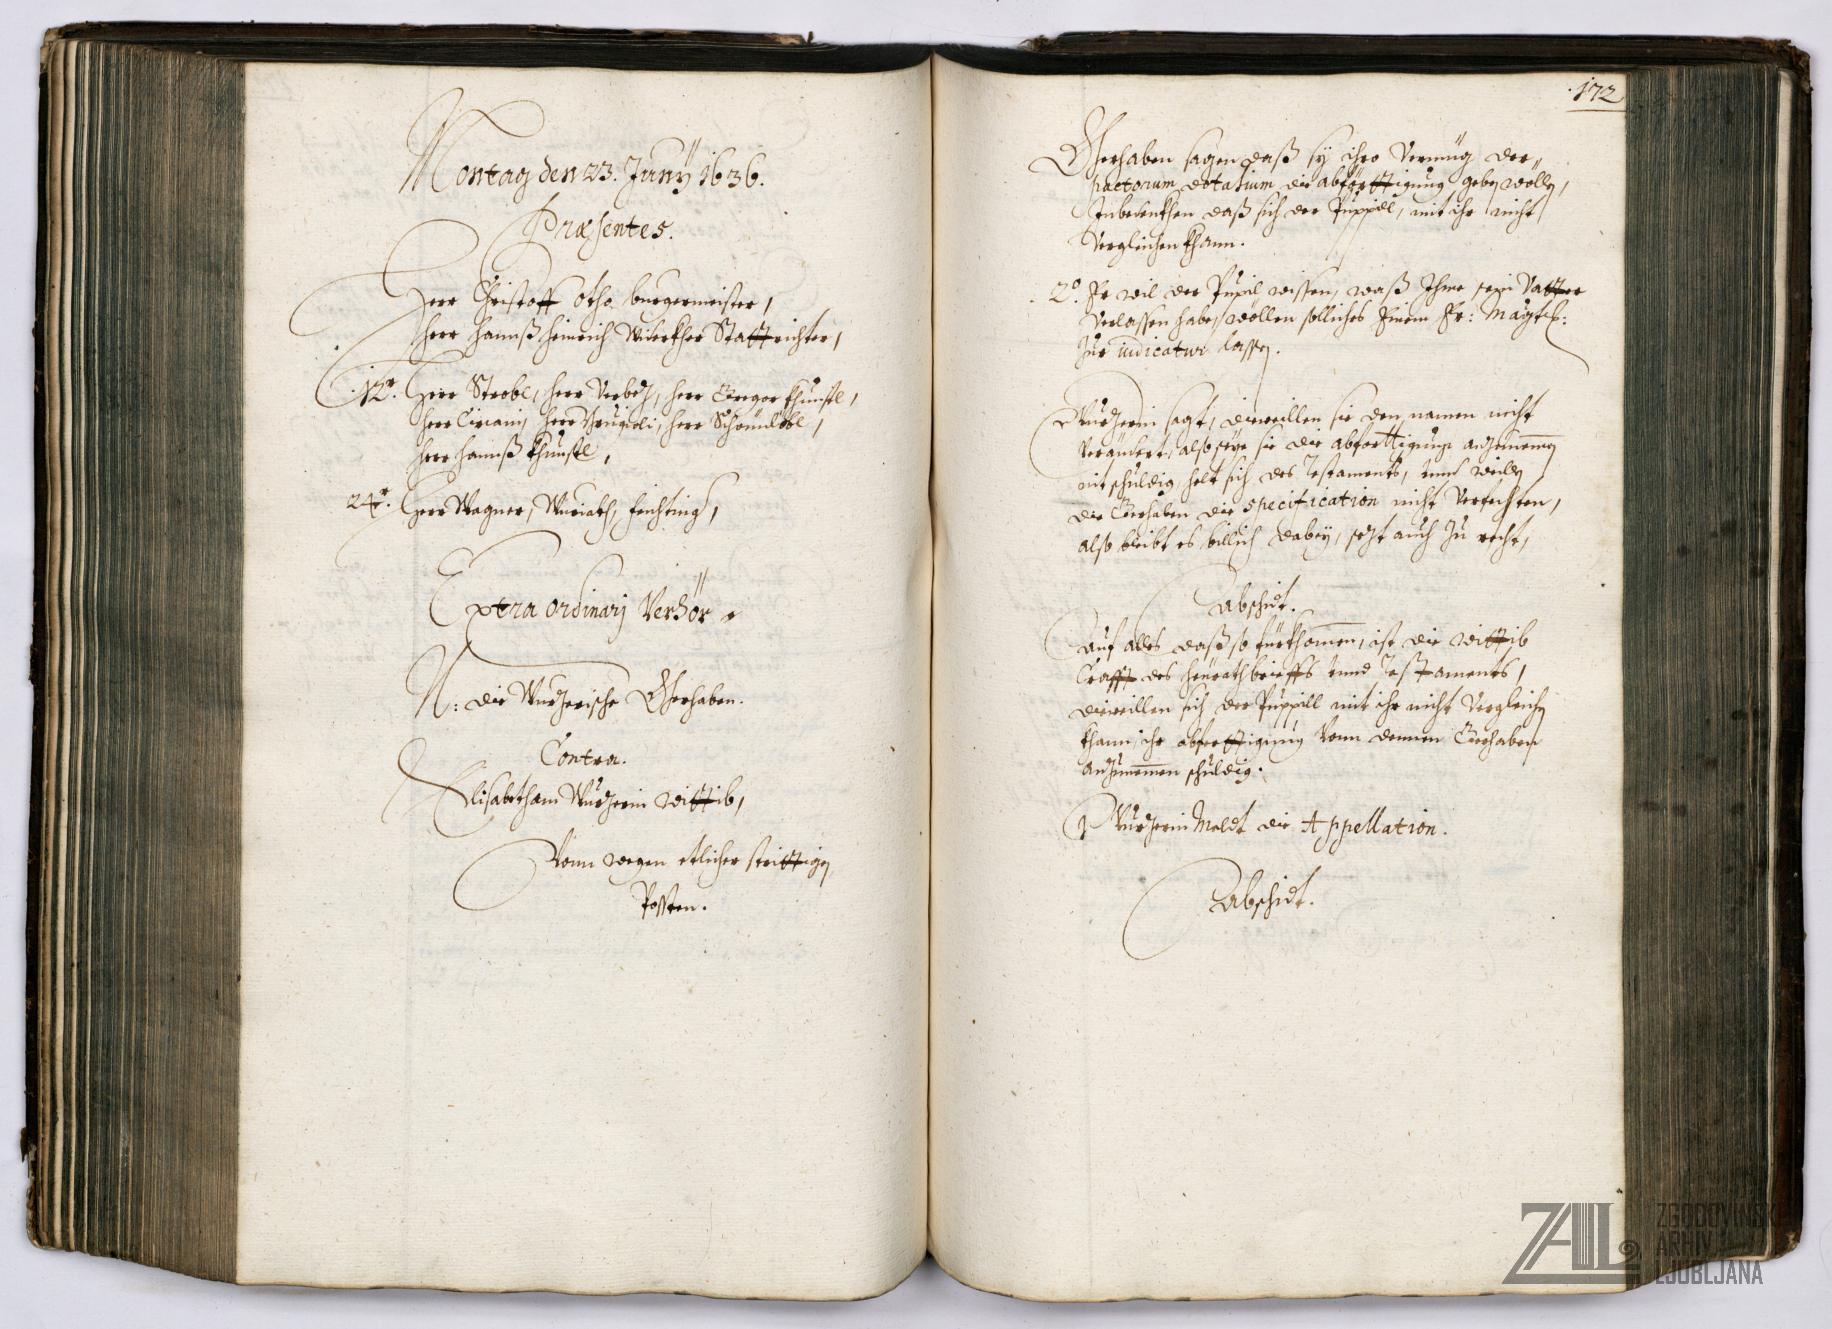 Montag den 23. Junÿ 1636.
Præsentes.
Herr Christoff Otho burgermeister,
Herr Hannß Heinrich Stattrichter,
12.er Herr Strobl, herr Verbez, herr Gregor Khunstl,
herr Ciriani, herr herr Schönnlebl,
herr Hannß Khunstl,
24.er Herr Wagner, Wuriath, Feichting,
Extra ordinarj Verhör
N: die Wurzerische Gherhaben.
Contra.
Elisabetham Wurzerin wittib,
Vonn wegen etlicher strittigen
Possten.
172
Gherhaben sagen daß sÿ ihro vermüg der
pactorum dotalium die abförttigung geben wöllen,
Inbedenkhen daß sich der Puppill, mit ihr nicht
Vergleichen khann.
2.o Er wil der Pupil wissen, waß Ihme sein Vatter
Verlassen habe, wöllen solliches Einem Er: Magtt:
Zur iudicatur lassen.
Wurzerin sagt, dieweillen sie den namen nicht
Verändert, also seÿe sie die abferttigung anzunemen
nit schuldig, helt sich des Testaments, unnd weillen
die Gerhaben die Specification nicht Verfechten,
also bleibt es billich dabeÿ, sezt auch zu recht,
Abschidt.
Auf alles daß so fürkhommen, ist die wittib
Crafft des heÿrathbrieffs unnd Testaments,
dieweillen sich der Puppill mit ihr nicht Vergleichen
khann, ihr abferttigung Vonn dennen Gerhaben
anzunemen schuldig.
Wurzerin Meldt die Appellation.
Abschidt.
ZAL
ZGODOVINSKI
ARHIV
LJUBLJANA